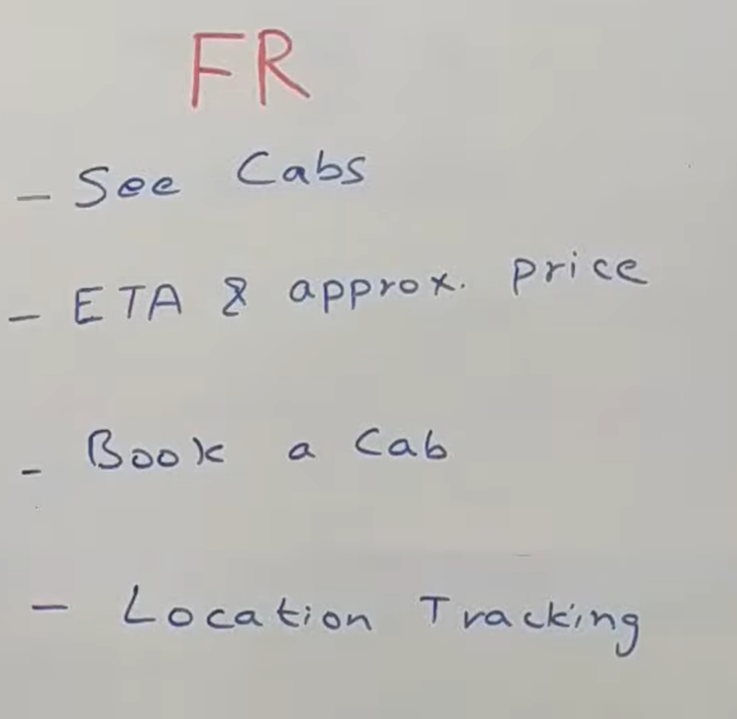 FR
- See Cabs
- ETA & approx. price
- Book a Cab
- Location Tracking